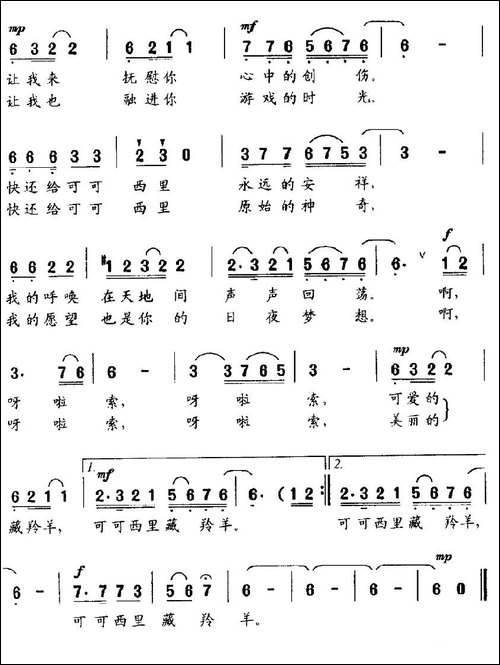 mp mf
6 3 2 2 | 6 2 1 1 | 7 7 6 5 6 7 6 | 6 -
让我来 抚慰你 心中的创 伤。
让我也 融进你 游戏的时 光。
6 6 6 3 3 | 2 3 0 | 3 7 7 6 7 5 3 | 3 -
快还给可可 西里 永远的安 祥,
快还给可可 西里 原始的神 奇,
f
6 6 2 2 | #1 2 3 2 2 | 2·3 2 1 5 6 7 6 | 6· ∨ 1 2
我的呼唤 在天地间 声声回荡。 啊,
我的愿望 也是你的 日夜梦想。 啊,
mp
3· 7 6 | 6 - | 3 3 7 6 5 | 3 - | 6 3 2 2
呀 啦 索, 呀 啦 索, 可爱的
呀 啦 索, 呀 啦 索, 美丽的
1. mf 2.
6 2 1 1 | 2·3 2 1 5 6 7 6 | 6· (1 2 :‖ 2·3 2 1 5 6 7 6
藏羚羊, 可可西里藏 羚羊。 可可西里藏 羚羊,
f mp
6 - | 7·7 7 3 | 5 6 7 | 6 - | 6 - | 6 - | 6 0 ‖
可可西里 藏 羚 羊。